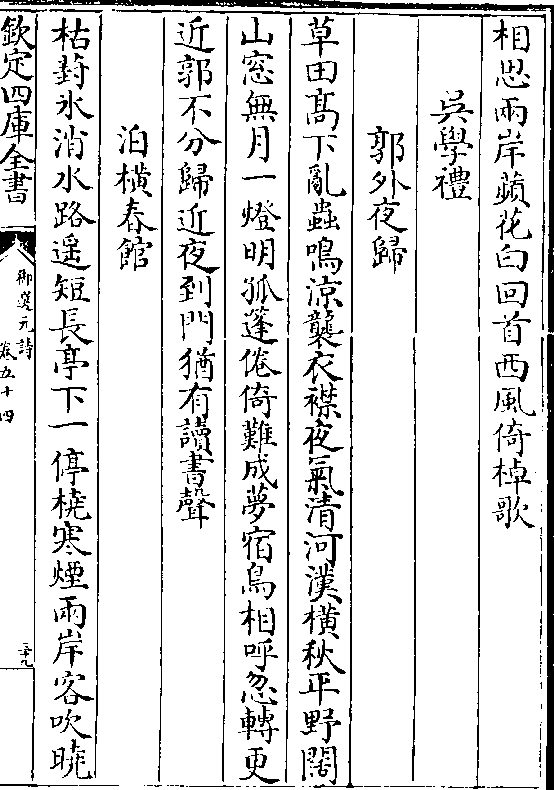 相思兩岸蘋花白回首西風倚棹歌
吳學禮
郭外夜歸
草田髙下亂蟲鳴涼襲衣襟夜氣清河漢橫秋平野闊
山窓無月一燈明孤篷倦倚難成夢宿鳥相呼忽轉更
近郭不分歸近夜到門猶有讀書聲
泊橫春館
枯葑氷消水路遥短長亭下一停橈寒煙兩岸客吹曉
欽定四庫全書
御選元詩
卷五十四
三十九